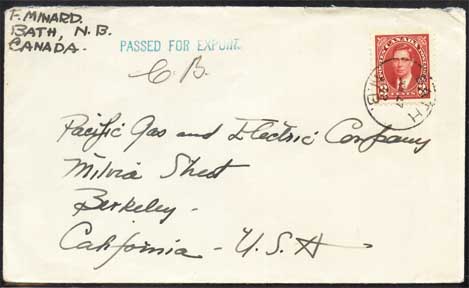 F. MINARD.
BATH, N.B.
CANADA.
PASSED FOR EXPORT
C. B.
CANADA
CENTS
BATH
N.B.
Pacific Gas and Electric Company
Milvia Street
Berkeley -
California - U.S.A